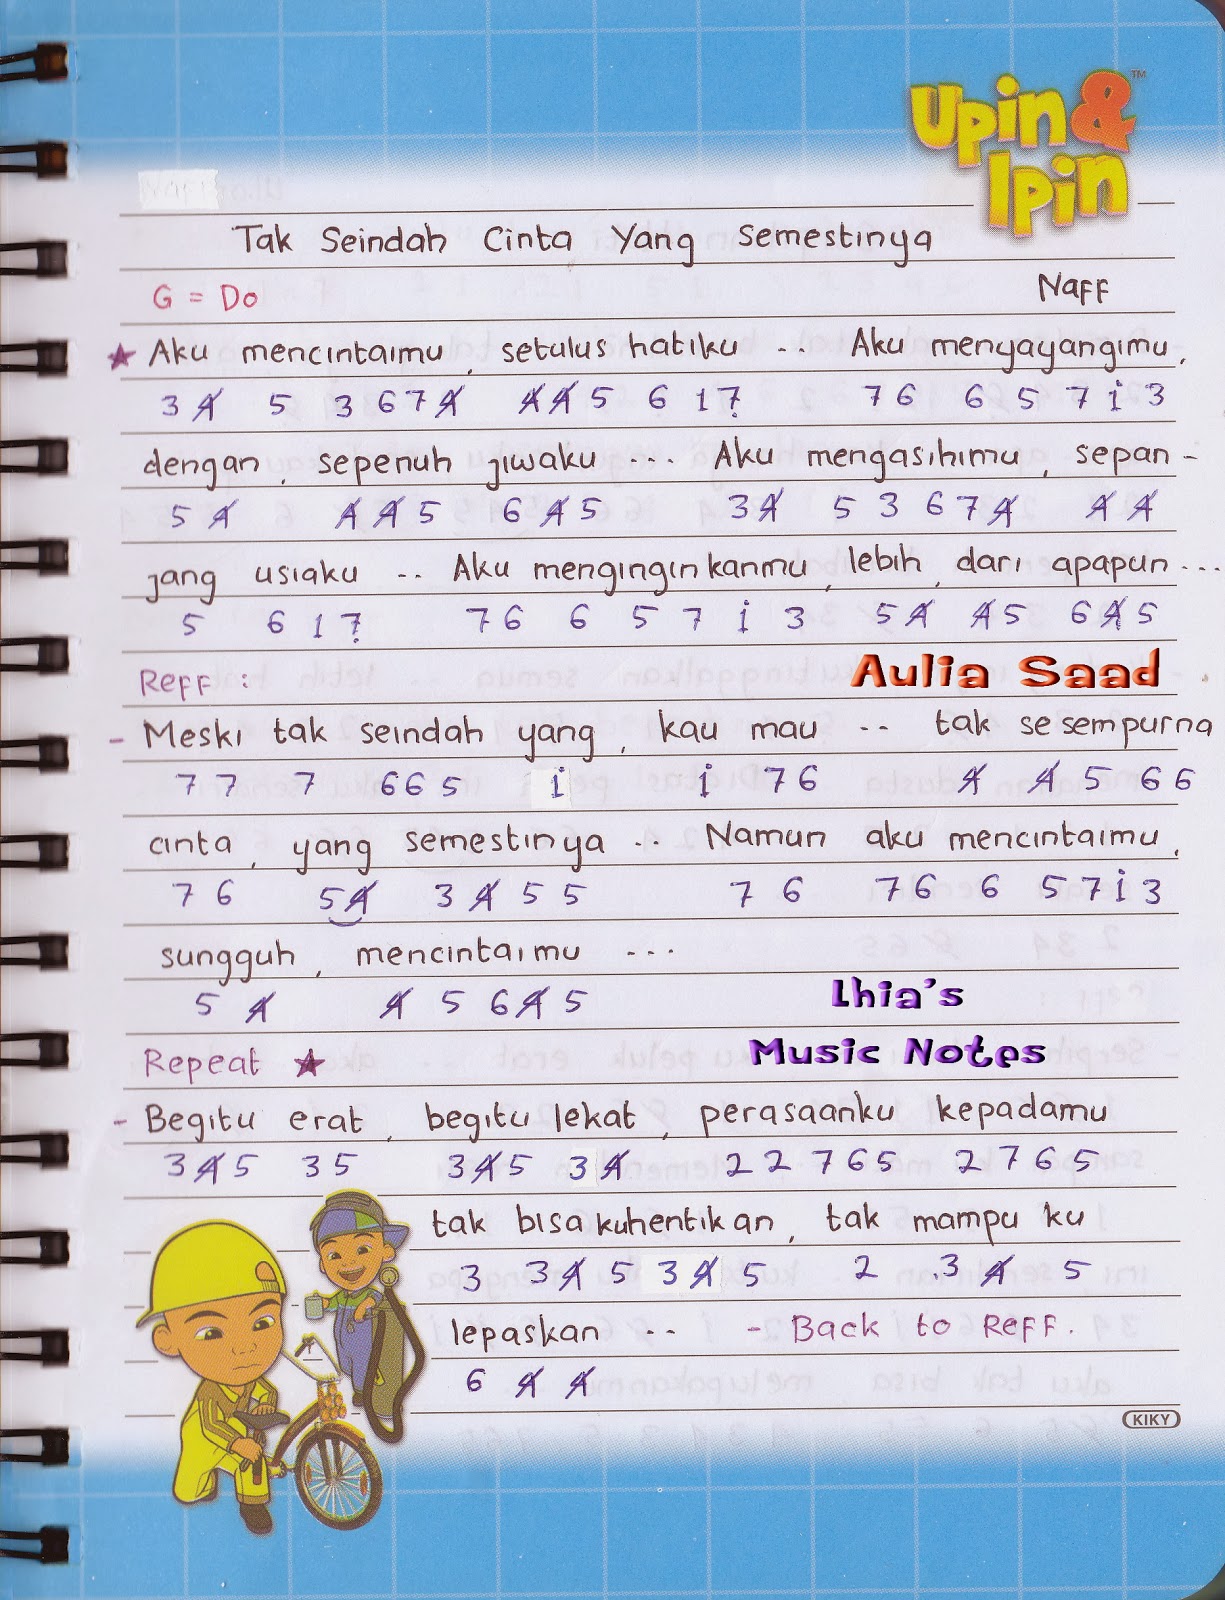 Upin &
Ipin ™
Tak Seindah Cinta Yang Semestinya
G = Do
Naff
★ Aku mencintaimu, setulus hatiku ... Aku menyayangimu,
3 4̸ 5 3 6 7 4̸ 4̸ 4̸ 5 6 1 7̣ 7 6 6 5 7 i 3
dengan, sepenuh jiwaku .... Aku mengasihimu, sepan-
5 4̸ 4̸ 4̸ 5 6 4̸ 5 3 4̸ 5 3 6 7 4̸ 4̸ 4̸
jang usiaku .. Aku menginginkanmu, lebih, dari apapun ...
5 6 1 7̣ 7 6 6 5 7 i 3 5 4̸ 4̸ 5 6 4̸ 5
Reff :
Aulia Saad
- Meski tak seindah yang, kau mau .. tak sesempurna
7 7 7 6 6 5 i i 7 6 4̸ 4̸ 5 6 6
cinta, yang semestinya .. Namun aku mencintaimu,
7 6 5 4̸ 3 4̸ 5 5 7 6 7 6 6 5 7 i 3
sungguh, mencintaimu ...
5 4̸ 4̸ 5 6 4̸ 5
Lhia's
Repeat ★
Music Notes
- Begitu erat, begitu lekat, perasaanku kepadamu
3 4̸ 5 3 5 3 4̸ 5 3 4̸ 2 2 7 6 5 2 7 6 5
tak bisa kuhentikan, tak mampu ku
3 3 4̸ 5 3 4̸ 5 2 .3 4̸ 5
lepaskan .. - Back to Reff.
6 4̸ 4̸
KIKY